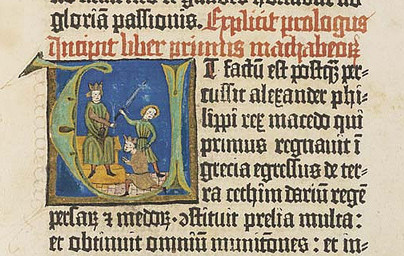 gloriā passionis. Explicit prologus
Incipit liber primus machabeoꝝ
Et factū est postꝙ̄ per-
cussit alexander phi-
lippi rex macedo qui
primus regnauit ī
grecia egressus de ter-
ra cethim dariū regē
persaꝝ ⁊ medoꝝ. ꝯstituit prelia multa:
et obtinuit omniū munitōnes: et in-